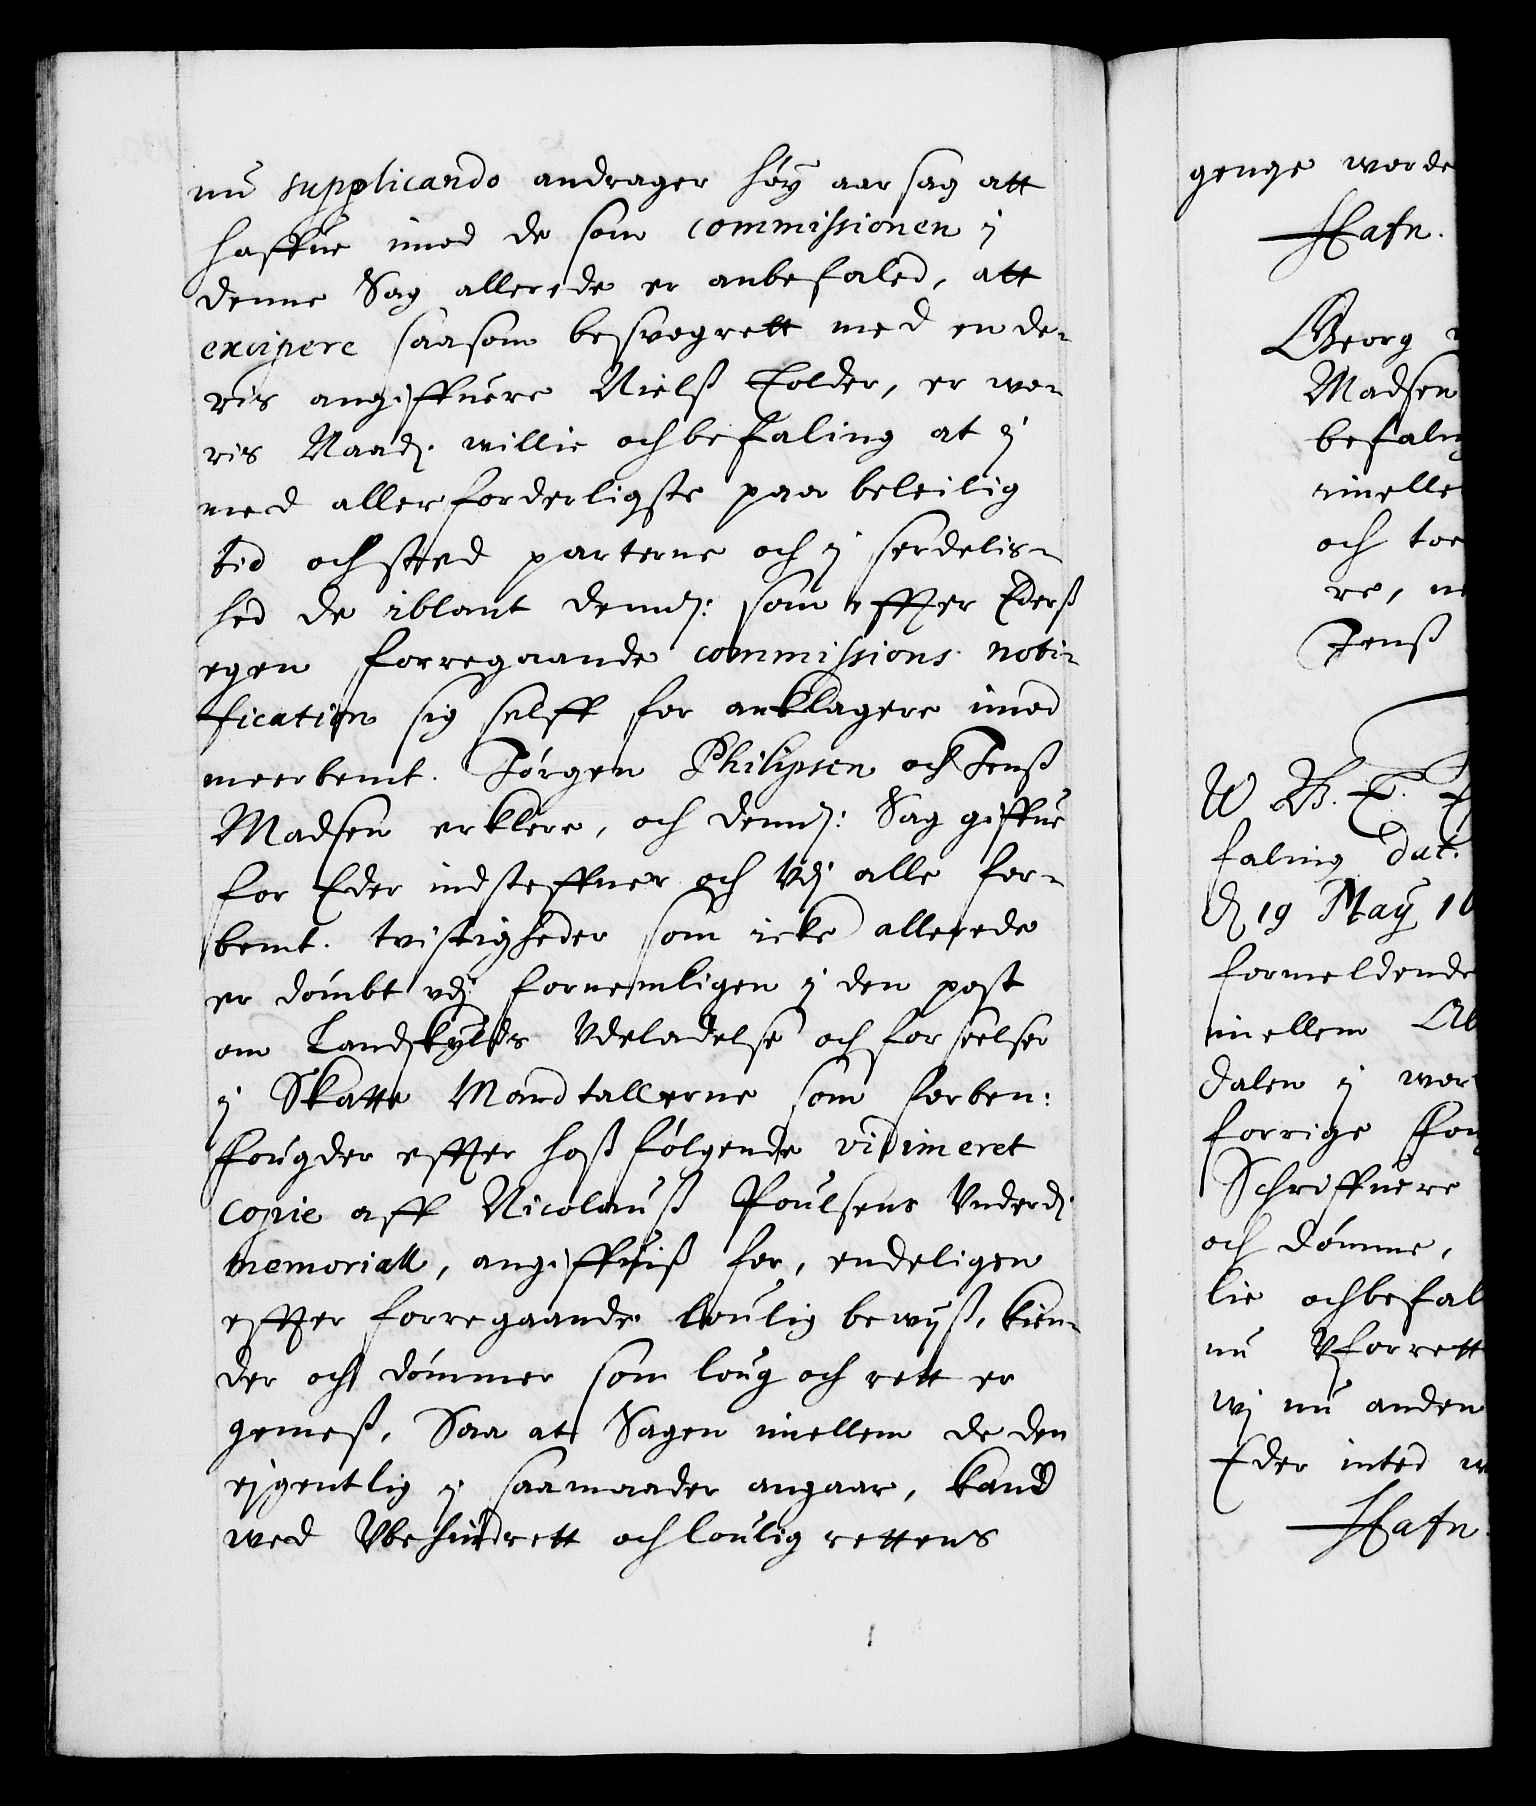 nu supplicando andrager høy aarsag att
haffue imod de som commissionen i
denne Sag allerede er anbefaled, att
excipere saasom besvogrett med en de-
ris angiffuere Nielß Tolder, er wo-
ris Naad. willie och befaling at i
med allerforderligste paa beleilig
tid och sted parterne och i serdelis-
hed de iblant dennd: som effter Ederß
egen forregaande commissions noti-
fication sig selff for anklagere imod
meerbemt. Jørgen Philipsen och Jenß
Madsen erklere, och dennd: Sag giffue
for Eder indsteffner och Vdj alle for-
bemt. tvistigheder som icke allerede
er dømbt vdj fornemligen i den post
om Landskylds Vdeladelse och forseelser
i Skatte Mandtallerne som forben:
fougder effter hoßfølgende vidimeret
copie aff Nicolauß Poulsens Underd
memoriall, angiffuiß for, endeligen
effter forregaande louelig bewyß, kien-
der och dømmer som loug och rett er
gemeß, Saa at Sagen imellem de den
eigentlig i saamaader angaar, kand
wed Vbehindrett och loulig rettens
genge worde
Hafn.
Georg
Madsen
befaling
imellem
och toe
re, 
Jenß
W G. T. 
faling dat:
d 19 May 16
formeldende
imellem Ab
dalen i wor
forrige Fou
Schriffuere
och dømme,
lie och befal
nu Vforrett
wj nu anden
Eder inted
Hafn.